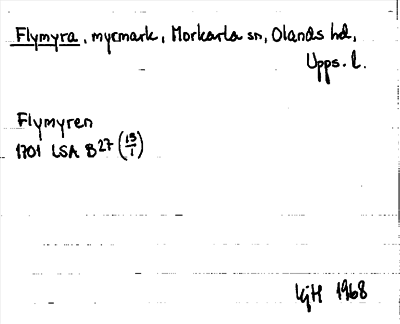 Flymyra, myrmark, Morkarla sn, Olands hd,
Upps. l.
Flymyren
1701 LSA B27 (15/1)
KjH 1968